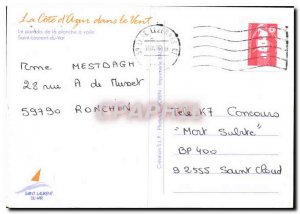 La Côte d'Azur dans le Vent
Le paradis de la planche à voile
Saint-Laurent-du-Var
Mme MESTDAGH
28 rue A de Musset
59790 RONCHIN
Télé K7 Concours
"Mort Subite"
BP 400
92555 Saint Cloud
SAINT LAURENT
DU VAR